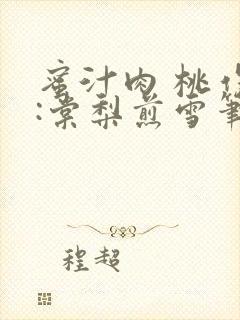 蜜汁肉桃作
:棠梨煎雪筆
程超